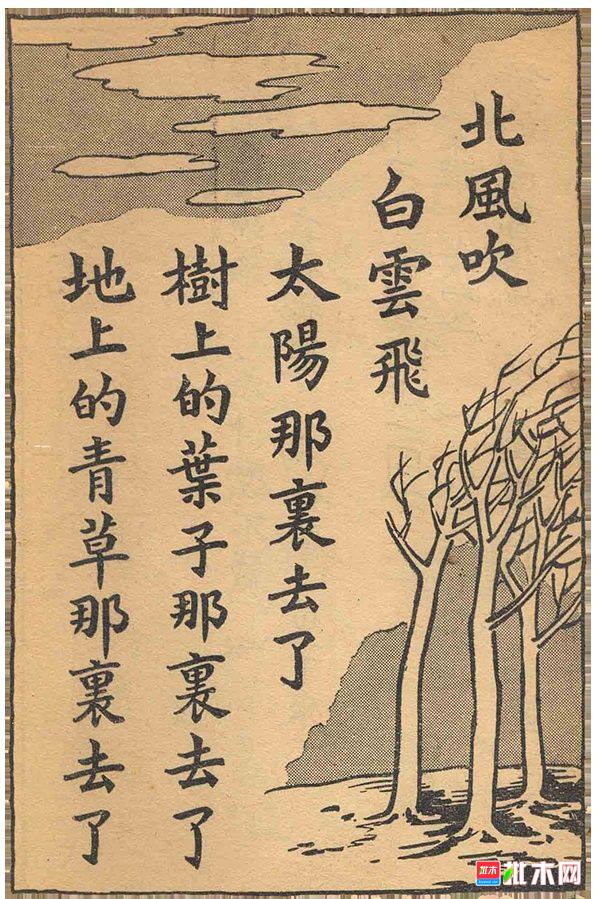 北風吹
白雲飛
太陽那裏去了
樹上的葉子那裏去了
地上的青草那裏去了
批木
批木网